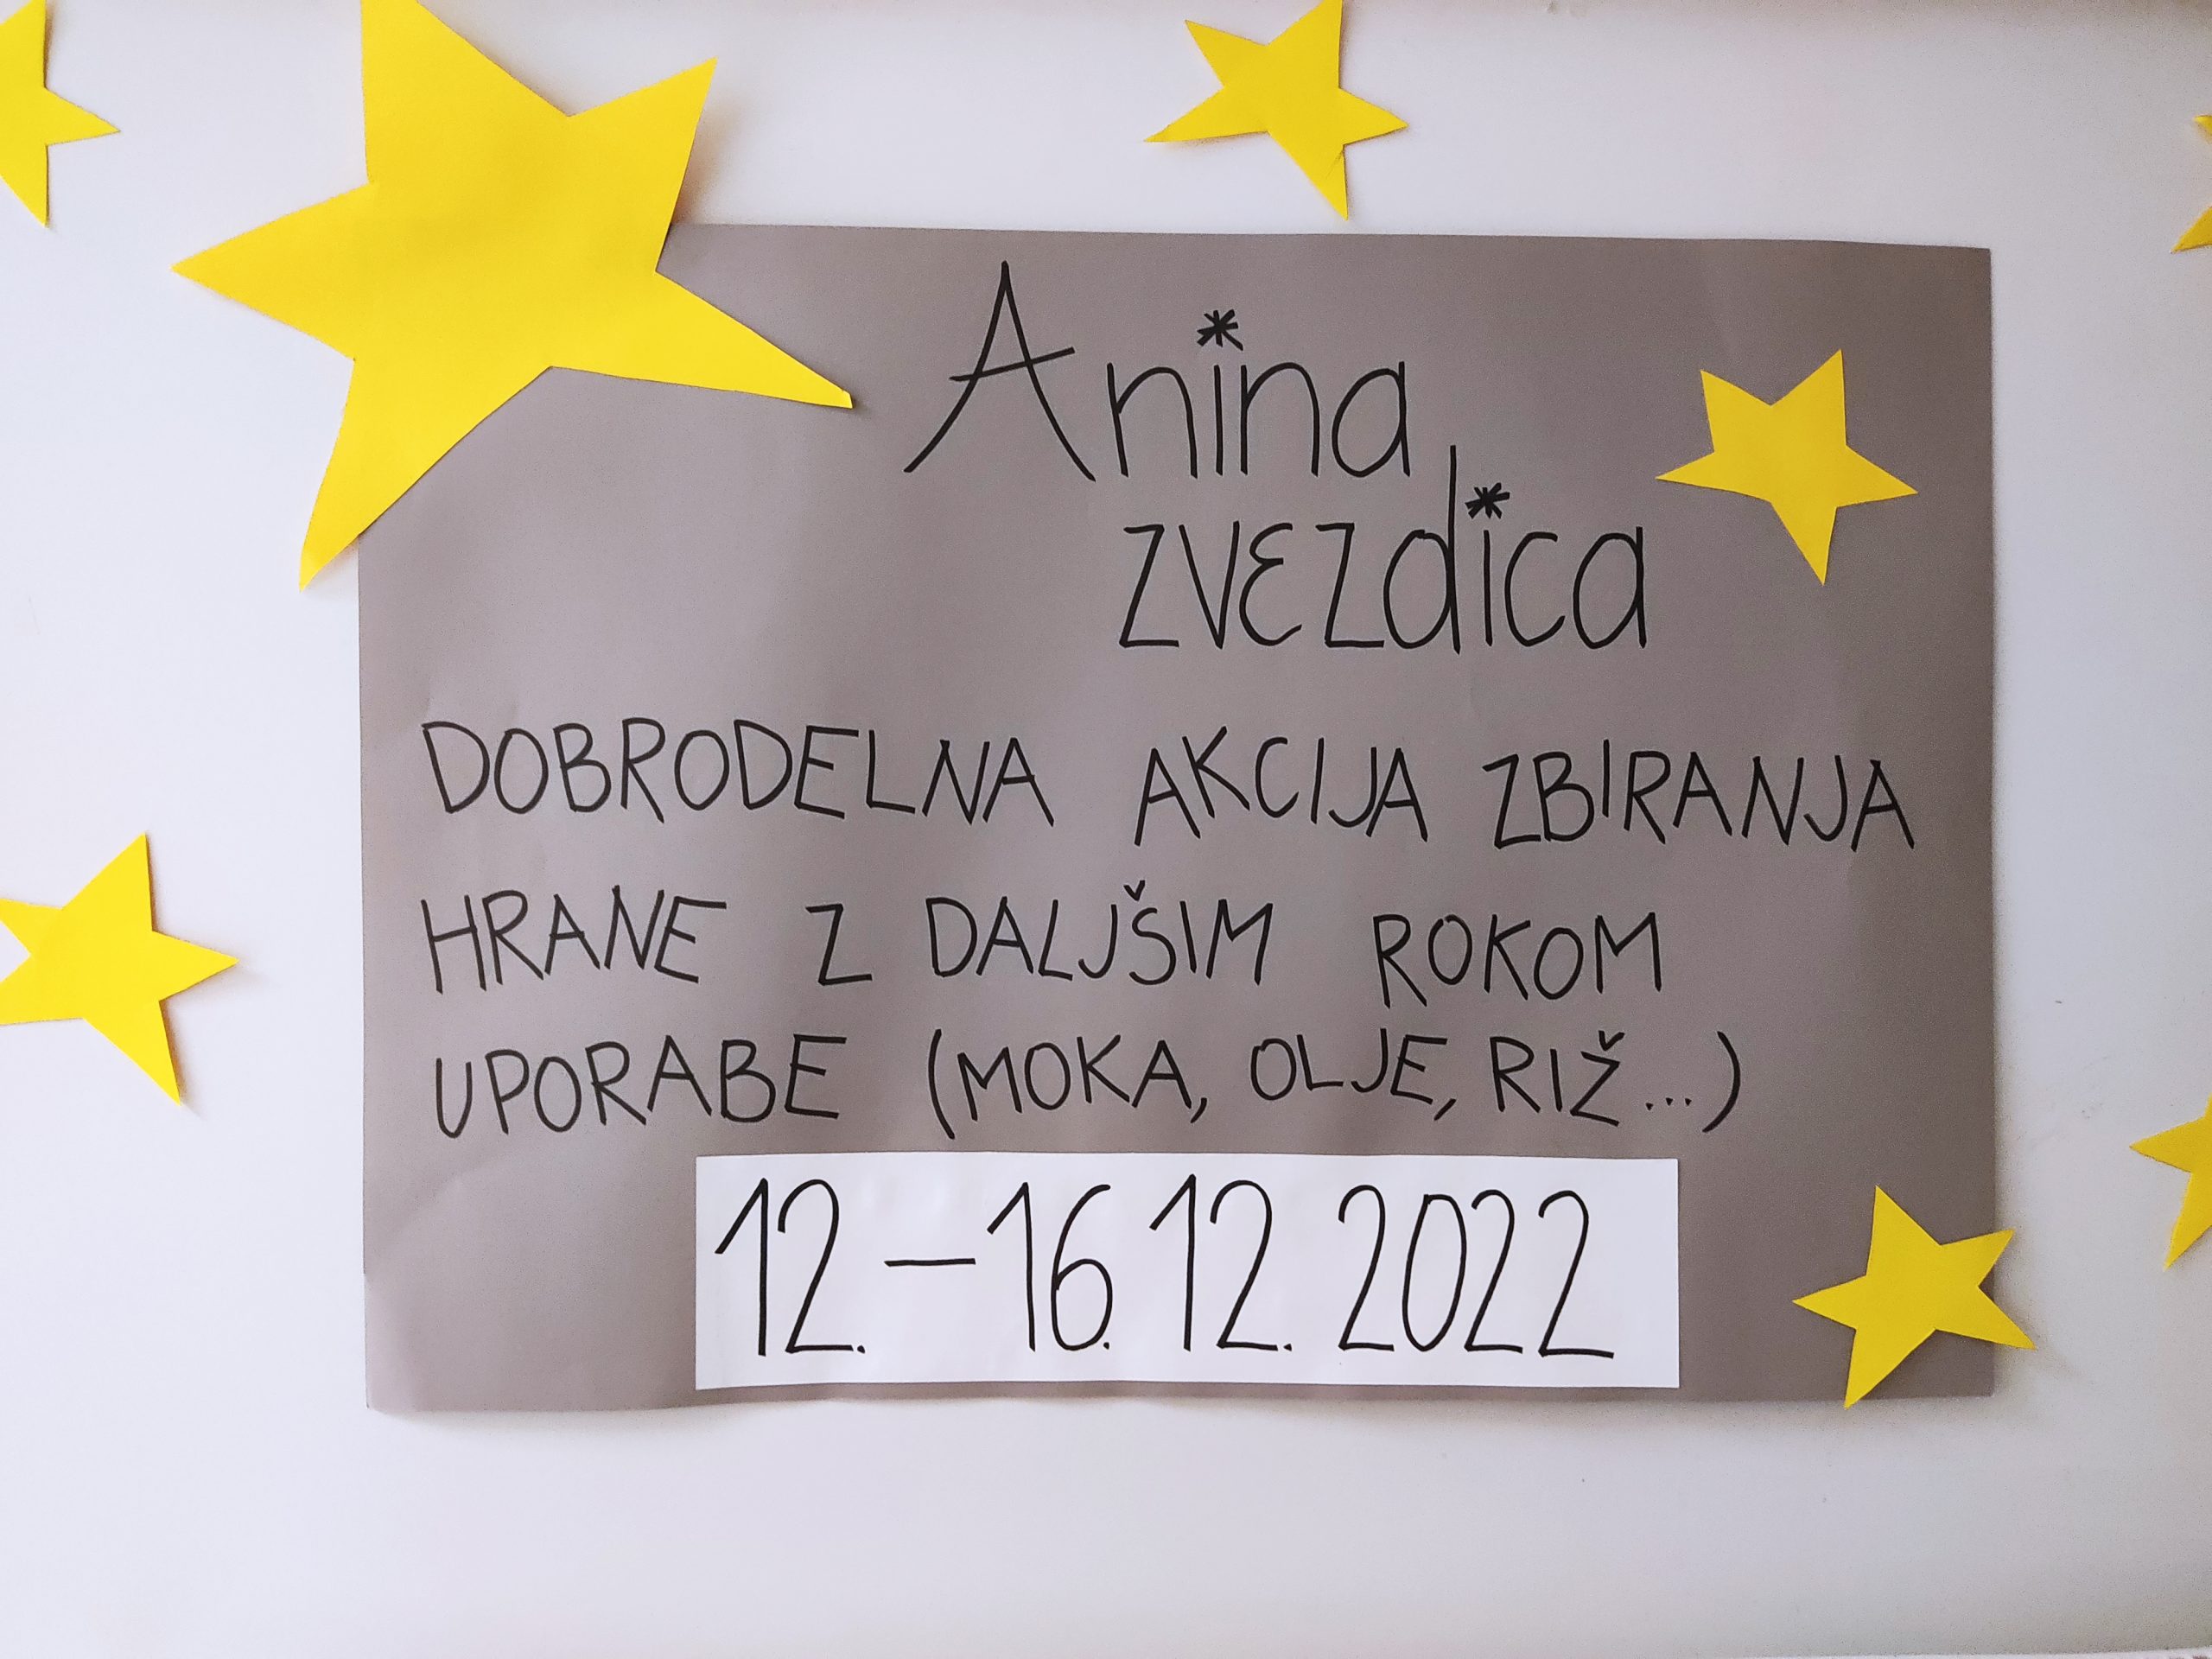 Anina
zvezdica
DOBRODELNA AKCIJA ZBIRANJA
HRANE Z DALJŠIM ROKOM
UPORABE (MOKA, OLJE, RIŽ...)
12.-16.12.2022